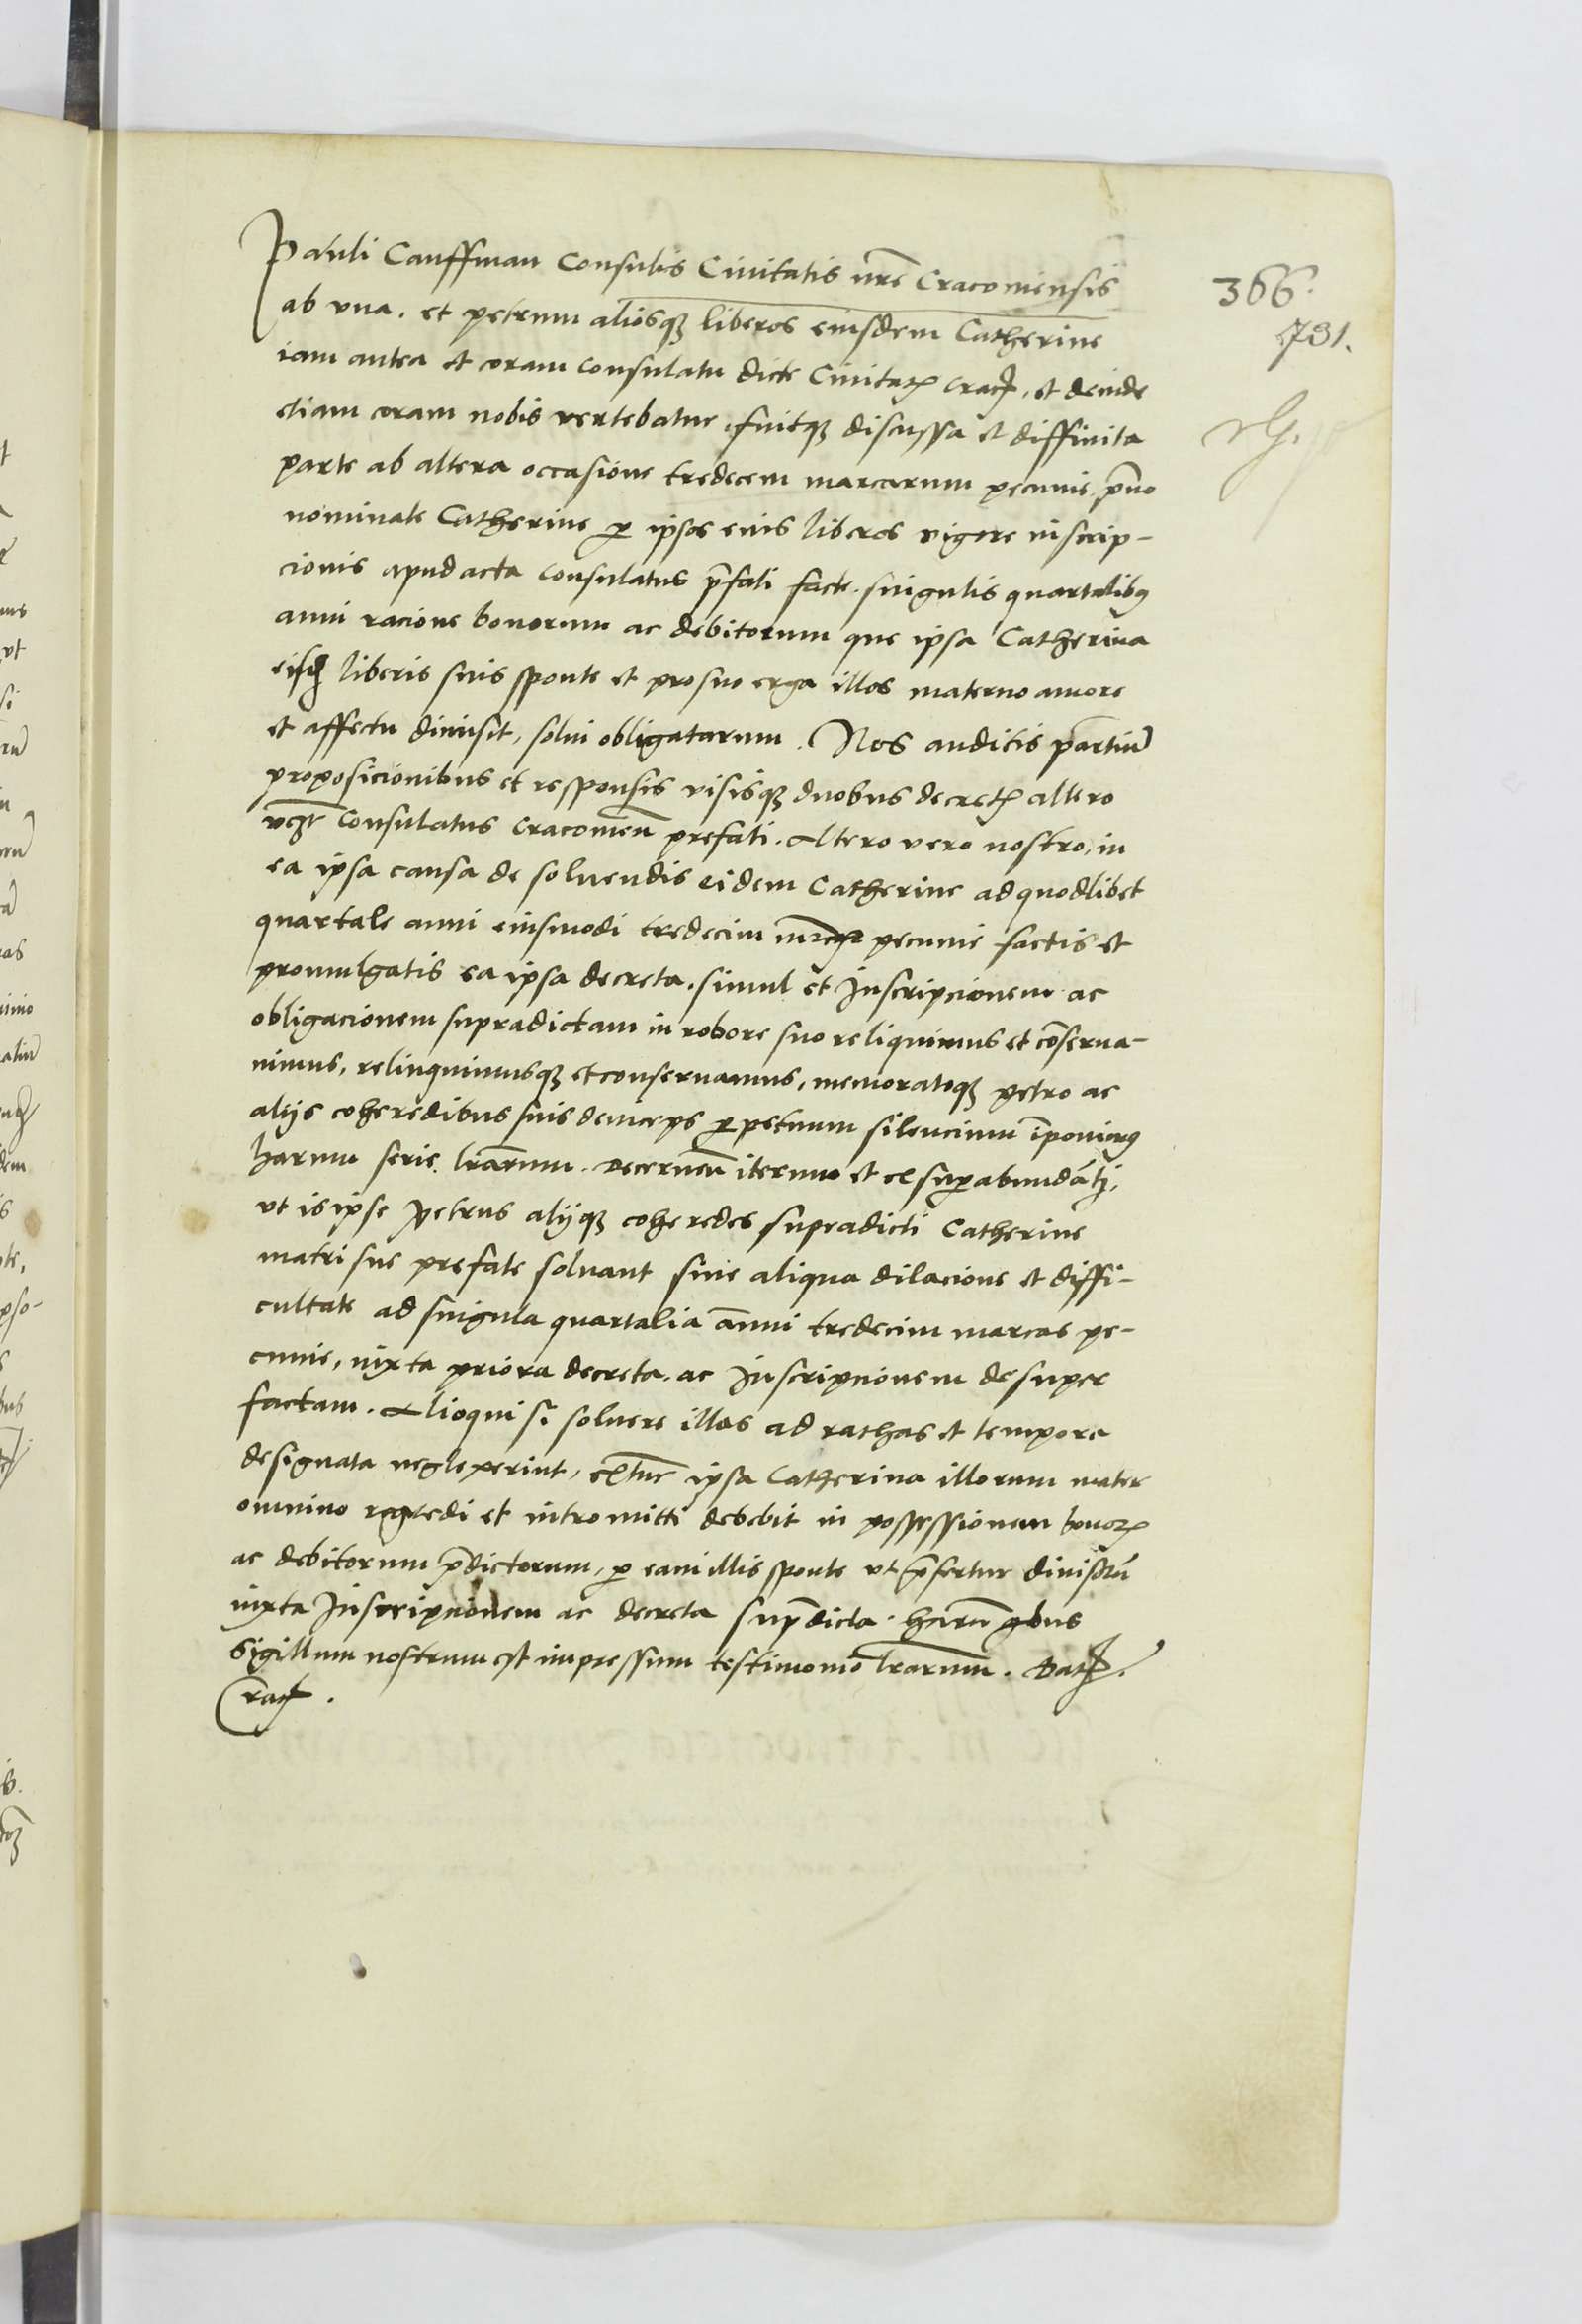 Pauli Cauffman Consulis Civitatis nrẽ Cracoviensis
366.
ab vna. et petrum aliosqꝫ liberos eiusdem Catherine
731.
iam antea et coram consulatu dicte Civitatꝭ Cracꝭ, et deinde
etiam coram nobis vertebatur, fuitqꝫ discussa et diffinita
parte ab altera occasione tredecem marcarum pecunie
nominate Catherine ꝑ ipsos eius liberos vigore inscrip-
cionis apud acta consulatus p̃fati facte. singulis quartalibꝰ
anni racione bonorum ac debitorum que ipsa Catherina
eisdꝫ liberis suis sponte et pro suo erga illos materno amore
et affectu dimisit, solui obligatarum. Nos auditis partiũ
proposicionibus et responsis visisqꝫ duobus decretꝭ altero
consulatus cracovieñ prefati. Altero vero nostro, in
ea ipsa causa de soluendis eidem Catherine ad quodlibet
quartale anni eiusmodi tredecim pecunie factis et
promulgatis ea ipsa decreta. simul et Inscripcionem ac
obligacionem supradictam in robore suo reliquimus et cõserua-
uimus, relinquimusqꝫ et conseruamus, memoratoqꝫ petro ac
alijs coheredibus suis deinceps ꝑpetuum silencium ĩponimꝰ
harum serie lr̃arum. decerneñ iterum et ex suꝑabundãtj,
vt is ipse Petrus alijqꝫ coheredes supradicti Catherine
matri sue prefate soluant sine aliqua dilacione et diffi-
cultate ad singula quartalia anni tredecim marcas pe-
cunie, iuxta priora decreta. ac Inscripcionem desuper
factam. Alioqui si soluere illas ad rathas et tempora
designata neglexerint, extũc ipsa Catherina illorum mater
omnino regredi et intromitti debebit in possessionem bonorꝭ
ac debitorum p̃dictorum, ꝑ eam illis sponte vt p̃fertur
iuxta Inscripcionem ac decreta sup̃dicta. harũ qbus
Sigillum nostrum est impressum testimonio lr̃arum. Datꝭ.
Cracꝭ.